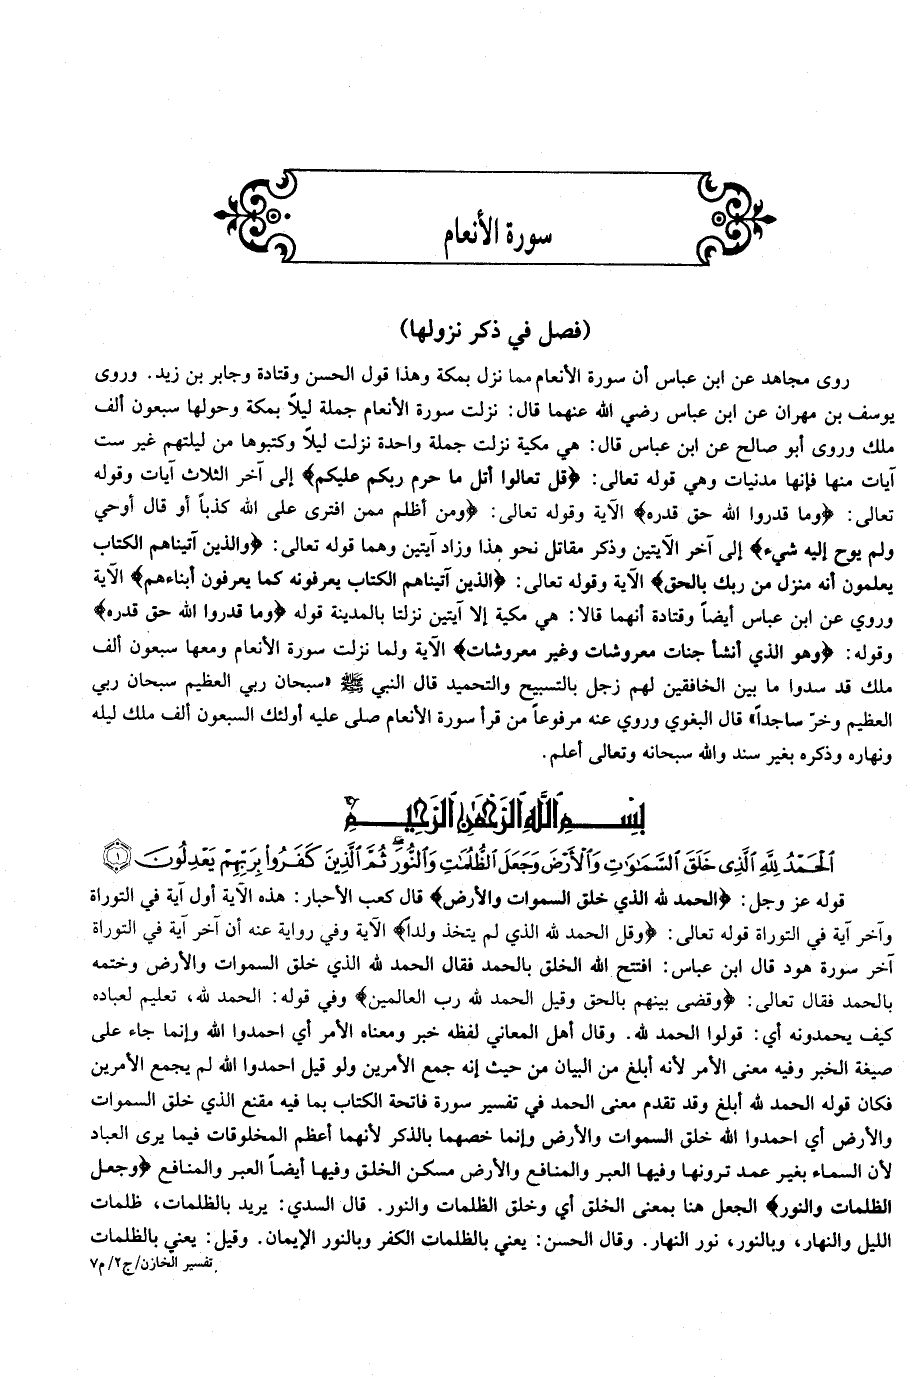 سورة الأنعام
(فصل في ذكر نزولها)
روى مجاهد عن ابن عباس أن سورة الأنعام مما نزل بمكة وهذا قول الحسن وقتادة وجابر بن زيد. وروى
يوسف بن مهران عن ابن عباس رضي الله عنهما قال: نزلت سورة الأنعام جملة ليلاً بمكة وحولها سبعون ألف
ملك وروى أبو صالح عن ابن عباس قال: هي مكية نزلت جملة واحدة نزلت ليلاً وكتبوها من ليلتهم غير ست
آيات منها فإنها مدنيات وهي قوله تعالى: ﴿قل تعالوا أتل ما حرم ربكم عليكم﴾ إلى آخر الثلاث آيات وقوله
تعالى: ﴿وما قدروا الله حق قدره﴾ الآية وقوله تعالى: ﴿ومن أظلم ممن افترى على الله كذباً أو قال أوحي
ولم يوح إليه شيء﴾ إلى آخر الآيتين وذكر مقاتل نحو هذا وزاد آيتين وهما قوله تعالى: ﴿والذين آتيناهم الكتاب
يعلمون أنه منزل من ربك بالحق﴾ الآية وقوله تعالى: ﴿الذين آتيناهم الكتاب يعرفونه كما يعرفون أبناءهم﴾ الآية
وروي عن ابن عباس أيضاً وقتادة أنهما قالا: هي مكية إلا آيتين نزلتا بالمدينة قوله ﴿وما قدروا الله حق قدره﴾
وقوله: ﴿وهو الذي أنشأ جنات معروشات وغير معروشات﴾ الآية ولما نزلت سورة الأنعام ومعها سبعون ألف
ملك قد سدوا ما بين الخافقين لهم زجل بالتسبيح والتحميد قال النبي ﷺ «سبحان ربي العظيم سبحان ربي
العظيم وخرّ ساجداً» قال البغوي وروي عنه مرفوعاً من قرأ سورة الأنعام صلى عليه أولئك السبعون ألف ملك ليله
ونهاره وذكره بغير سند والله سبحانه وتعالى أعلم.
بِسْمِ اللَّهِ الرَّحْمَٰنِ الرَّحِيمِ
الْحَمْدُ لِلَّهِ الَّذِي خَلَقَ السَّمَاوَاتِ وَالْأَرْضَ وَجَعَلَ الظُّلُمَاتِ وَالنُّورَ ۖ ثُمَّ الَّذِينَ كَفَرُوا بِرَبِّهِمْ يَعْدِلُونَ ﴿١﴾
قوله عز وجل: ﴿الحمد لله الذي خلق السموات والأرض﴾ قال كعب الأحبار: هذه الآية أول آية في التوراة
وآخر آية في التوراة قوله تعالى: ﴿وقل الحمد لله الذي لم يتخذ ولداً﴾ الآية وفي رواية عنه أن آخر آية في التوراة
آخر سورة هود قال ابن عباس: افتتح الله الخلق بالحمد فقال الحمد لله الذي خلق السموات والأرض وختمه
بالحمد فقال تعالى: ﴿وقضى بينهم بالحق وقيل الحمد لله رب العالمين﴾ وفي قوله: الحمد لله، تعليم لعباده
كيف يحمدونه أي: قولوا الحمد لله. وقال أهل المعاني لفظه خبر ومعناه الأمر أي احمدوا الله وإنما جاء على
صيغة الخبر وفيه معنى الأمر لأنه أبلغ من البيان من حيث إنه جمع الأمرين ولو قيل احمدوا الله لم يجمع الأمرين
فكان قوله الحمد لله أبلغ وقد تقدم معنى الحمد في تفسير سورة فاتحة الكتاب بما فيه مقنع الذي خلق السموات
والأرض أي احمدوا الله خلق السموات والأرض وإنما خصهما بالذكر لأنهما أعظم المخلوقات فيما يرى العباد
لأن السماء بغير عمد ترونها وفيها العبر والمنافع والأرض مسكن الخلق وفيها أيضاً العبر والمنافع ﴿وجعل
الظلمات والنور﴾ الجعل هنا بمعنى الخلق أي وخلق الظلمات والنور. قال السدي: يريد بالظلمات، ظلمات
الليل والنهار، وبالنور، نور النهار. وقال الحسن: يعني بالظلمات الكفر وبالنور الإيمان. وقيل: يعني بالظلمات
تفسير الخازن/ج٢/م٧